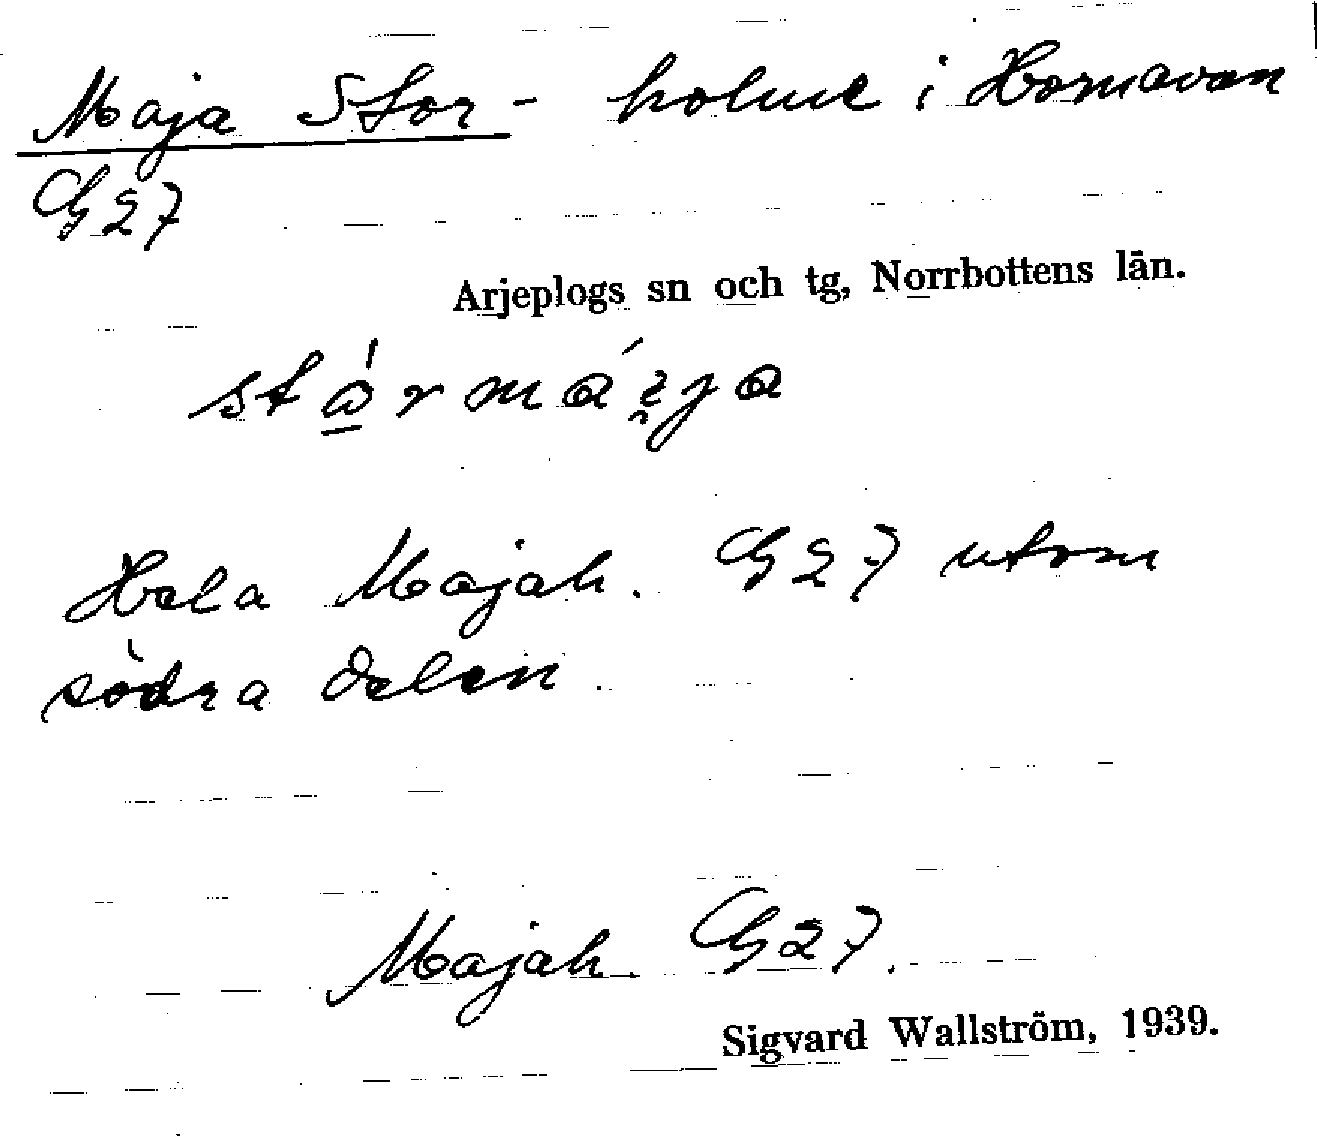 Maja Stor- holme i Hornavan
G27
Arjeplogs sn och tg, Norrbottens län.
Hela Majah. G27 utom
södra delen.
Majah. G27.
Sigvard Wallström, 1939.